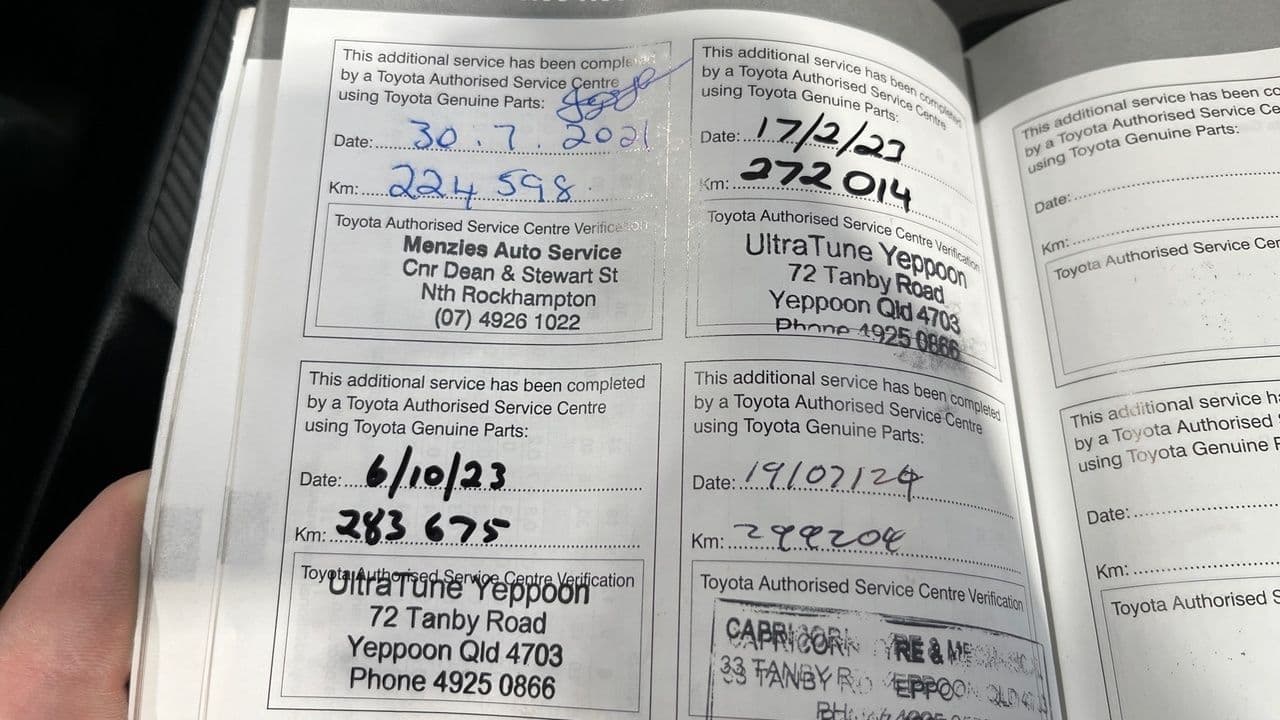 This additional service has been completed
by a Toyota Authorised Service Centre
using Toyota Genuine Parts:
Date: 30.7.2021
Km: 224 598
Toyota Authorised Service Centre Verification
Menzies Auto Service
Cnr Dean & Stewart St
Nth Rockhampton
(07) 4926 1022
This additional service has been completed
by a Toyota Authorised Service Centre
using Toyota Genuine Parts:
Date: 17/2/23
Km: 272 014
Toyota Authorised Service Centre Verification
UltraTune Yeppoon
72 Tanby Road
Yeppoon Qld 4703
Phone 4925 0866
This additional service has been completed
by a Toyota Authorised Service Centre
using Toyota Genuine Parts:
Date: 6/10/23
Km: 283 675
Toyota Authorised Service Centre Verification
UltraTune Yeppoon
72 Tanby Road
Yeppoon Qld 4703
Phone 4925 0866
This additional service has been completed
by a Toyota Authorised Service Centre
using Toyota Genuine Parts:
Date: 19/07/24
Km: 299204
Toyota Authorised Service Centre Verification
CAPRICORN YRE & ME
33 TANBY R EPPOON QLD
PH:
This additional service has been co
by a Toyota Authorised Service Ce
using Toyota Genuine Parts:
Date:
Km:
Toyota Authorised Service Cer
This additional service h
by a Toyota Authorised
using Toyota Genuine P
Date:
Km:
Toyota Authorised S